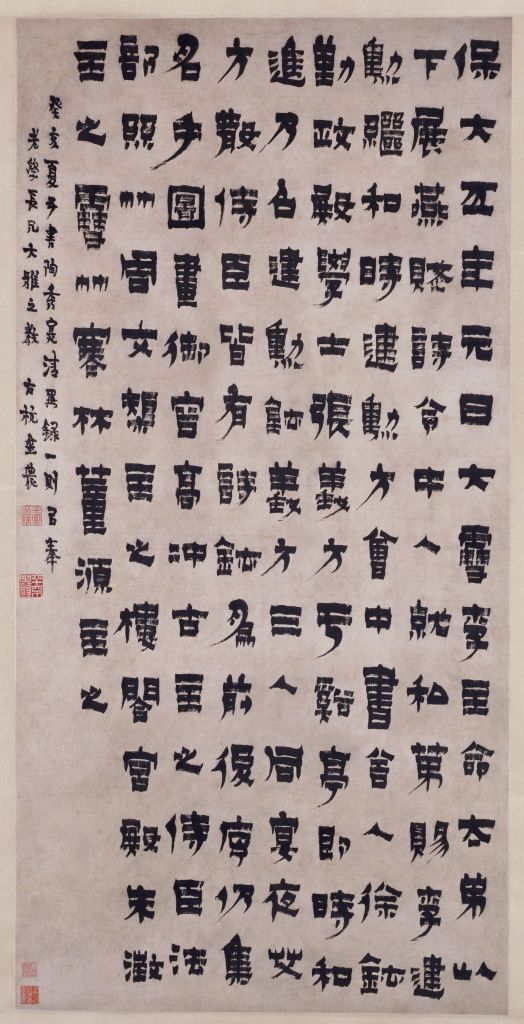 保大五年元日大雪李主命太弟以
下展燕賦詩令中人就和第賜李建
勳繼和時建勳方會中書省人徐鉉
勤政殿學士張義方于谿亭即時和
進乃召建勳鉉義方三人同宴夜艾
方散侍臣皆有詩鉉爲前後序仍集
名手圖畫御容高冲古主之侍臣法
部照竹周文矩主之樓閣宮殿朱澂
主之雪竹寒林董源主之
癸亥夏予書陶秀寔清異錄一則以奉
老學長兄大雅之教 古杭金農